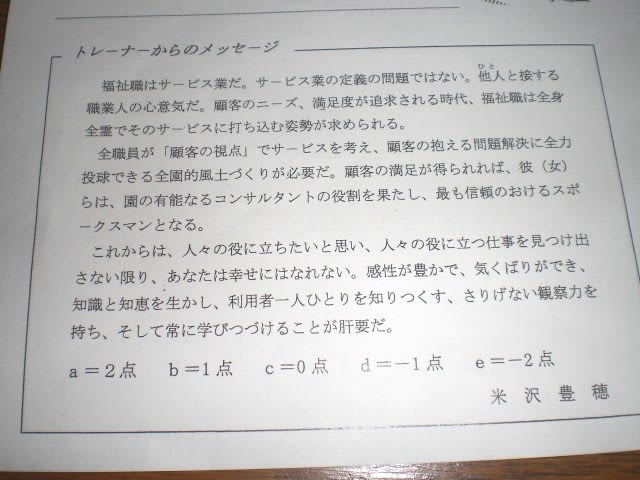 トレーナーからのメッセージ
福祉職はサービス業だ。サービス業の定義の問題ではない。他人と接する
ひと
職業人の心意気だ。顧客のニーズ、満足度が追求される時代、福祉職は全身
全霊でそのサービスに打ち込む姿勢が求められる。
全職員が「顧客の視点」でサービスを考え、顧客の抱える問題解決に全力
投球できる全園的風土づくりが必要だ。顧客の満足が得られれば、彼(女)
らは、園の有能なるコンサルタントの役割を果たし、最も信頼のおけるスポ
ークスマンとなる。
これからは、人々の役に立ちたいと思い、人々の役に立つ仕事を見つけ出
さない限り、あなたは幸せにはなれない。感性が豊かで、気くばりができ、
知識と知恵を生かし、利用者一人ひとりを知りつくす、さりげない観察力を
持ち、そして常に学びつづけることが肝要だ。
a=2点 b=1点 c=0点 d=-1点 e=-2点
米沢豊穂